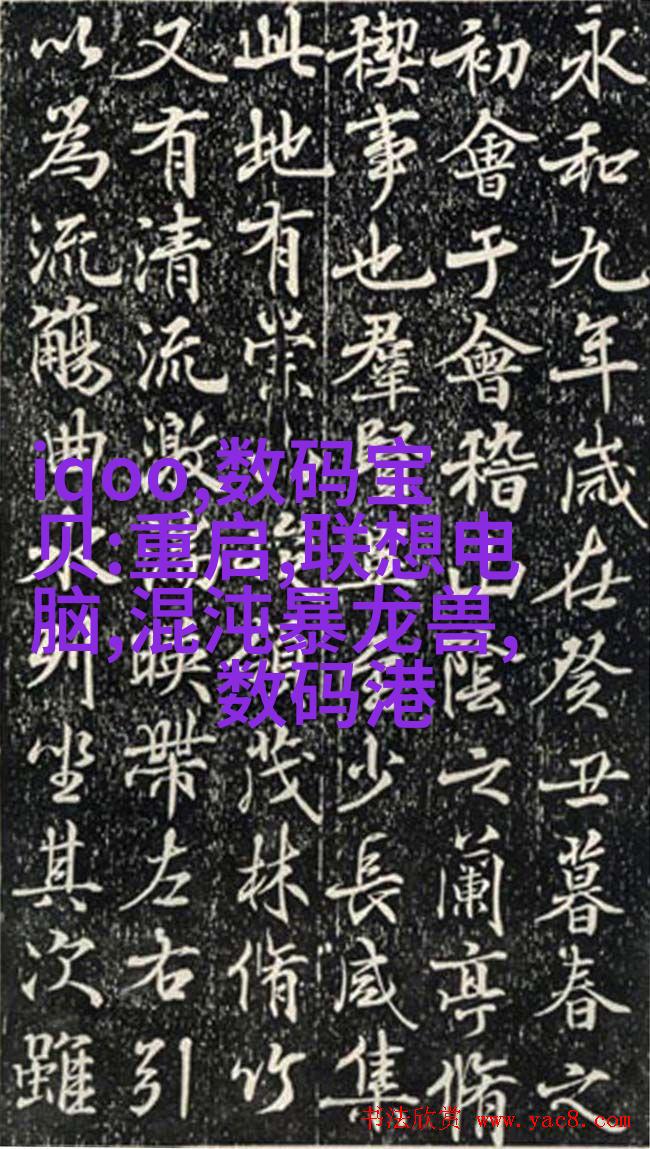 永和九年歲在癸丑暮春之
初會于會稽山陰之蘭亭脩
稧事也羣賢少長咸集
此地有崇茂林脩竹
又有清流激暎帶左右引
以為流觴曲水列坐其次雖
iqoo,数码宝
贝:重启,联想电
脑,混沌暴龙兽,
数码港
书法欣赏 www.yac8.com